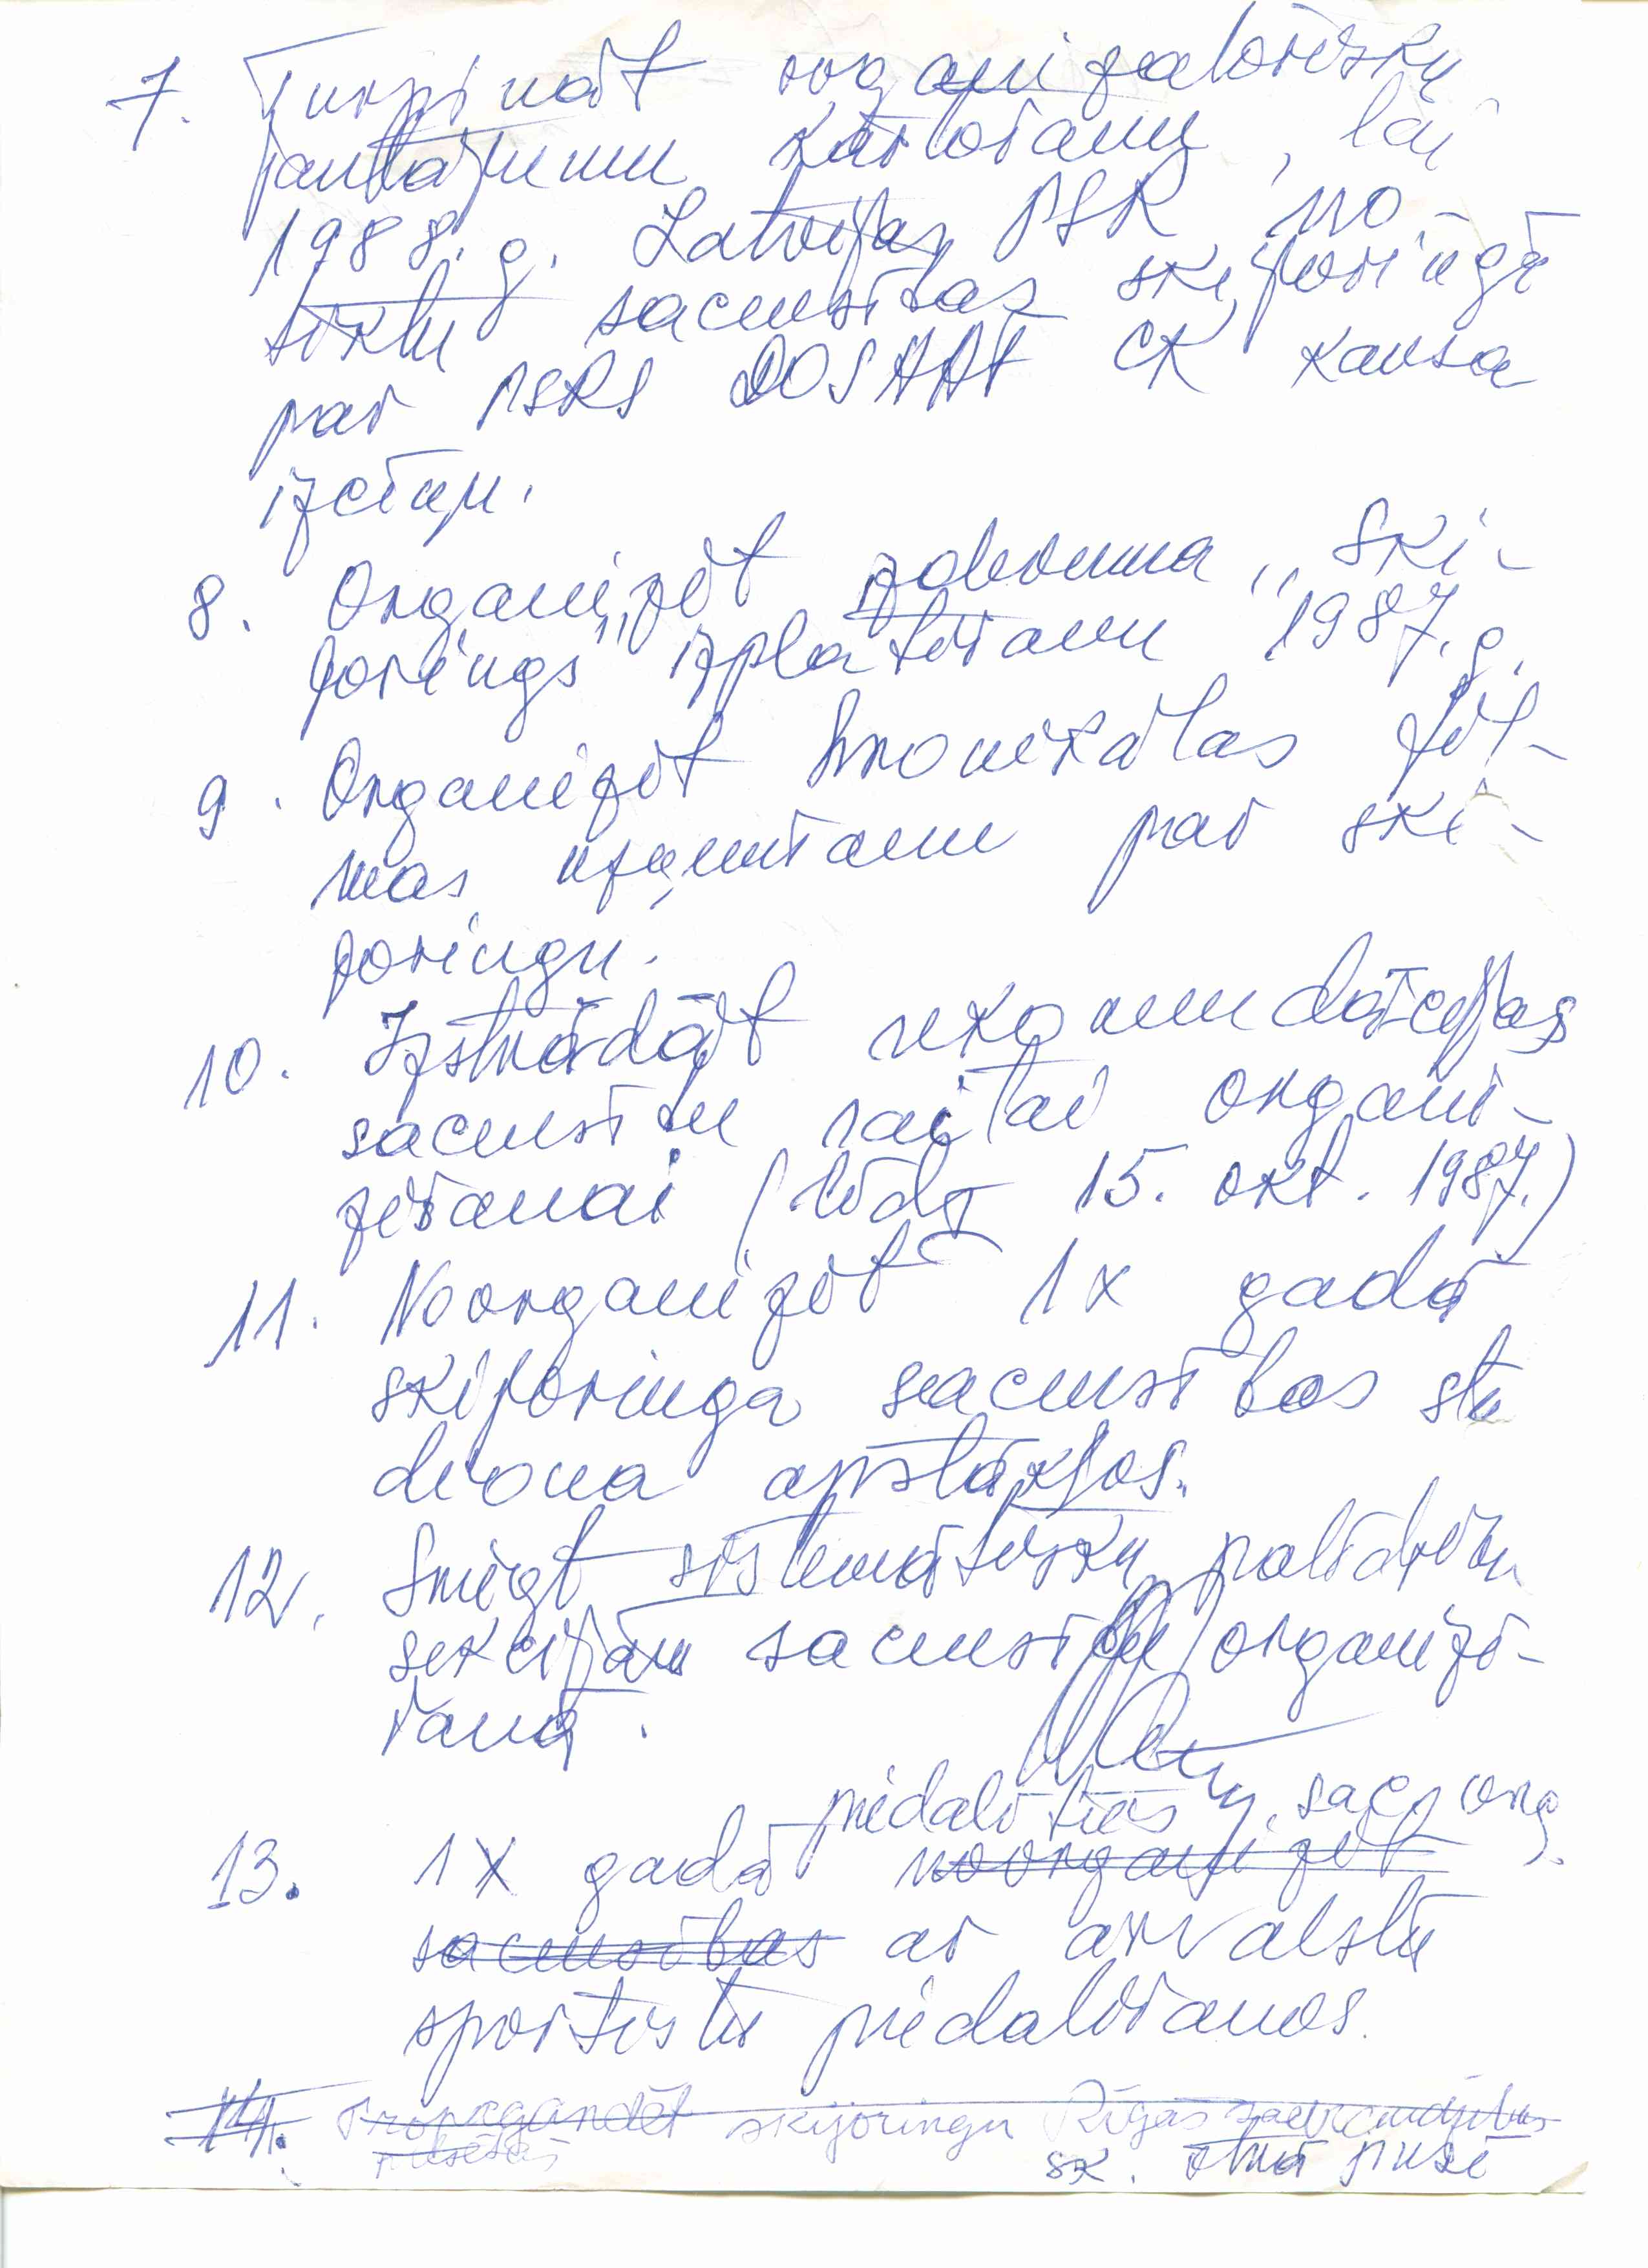 7. Turpināt organizatorisku
jautājumu kārtošanu, lai
1988. g. Latvijas PSR no-
tiktu sacensības skijoringā
par PSRS DOSAAF CK kausa
izcīņu.
8. Organizēt žetona „Ski-
jorings" izplatīšanu 1987. g.
9. Organizēt hronikālas fil-
mas uzņemšanu par ski-
joringu.
10. Izstrādāt rekomendācijas
sacensību raitai organi-
zēšanai (līdz 15. okt. 1987.)
11. Noorganizēt 1x gadā
skijoringa sacensības sta
diona apstākļos.
12. Sniegt sistemātisku palīdzību
sekcijām sacensību organizē-
šanā.
piedalīties sac. org.
13. 1X gadā noorganizēt
sacensības ar ārvalstu
sportistu piedalīšanos.
14. Propagandēt skijoringu Rīgas
sk. otrā pusē